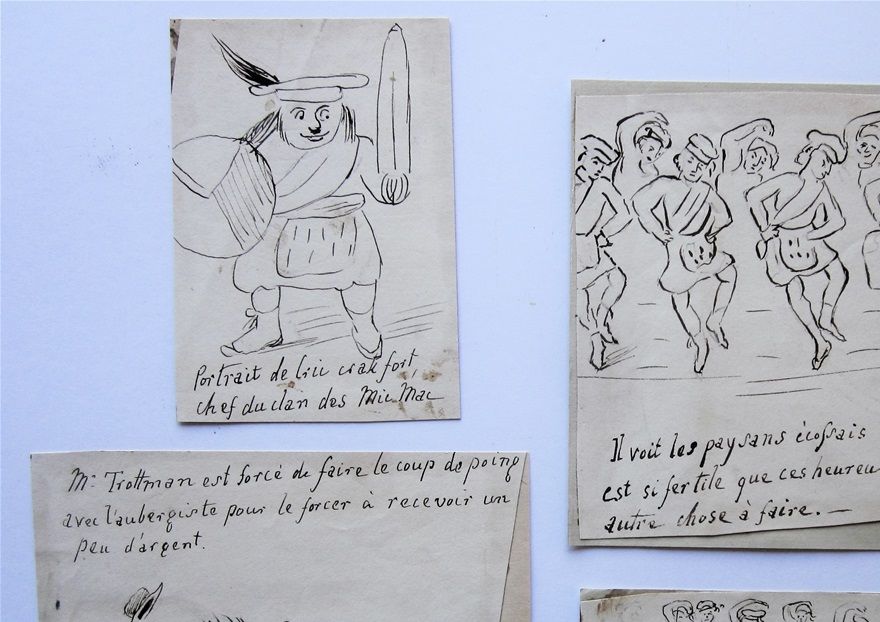 Portrait de Cric crak fort,
chef du clan des Mic Mac
Mr Trottman est forcé de faire le coup de poing
avec l'aubergiste pour le forcer à recevoir un
peu d'argent.
Il voit les paysans écossais
est si fertile que ces heureu
autre chose à faire. —